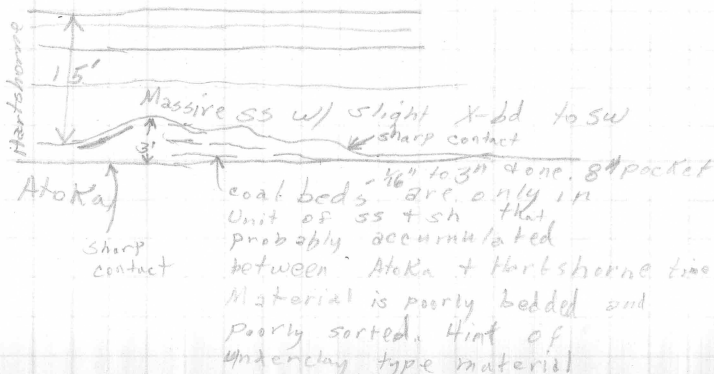 Hartshorne
15'
Massive ss w/ slight X-bd to sw
sharp contact
3'
1/16" to 3" & one 8" pocket
Atoka
coal beds are only in
Unit of ss + sh that
probably accumulated
between Atoka + Hartshorne time
Material is poorly bedded and
poorly sorted. Hint of
Underclay type material
sharp
contact